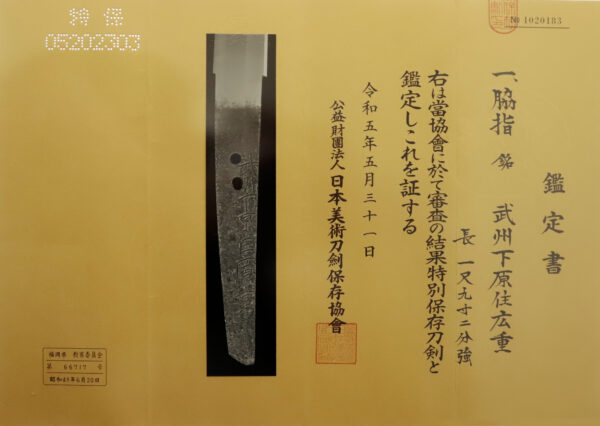 № 1020183
鑑定書
一、脇指 銘 武州下原住広重
長 一尺九寸二分強
右は當協會に於て審査の結果特別保存刀剣と
鑑定しこれを証する
令和五年五月三十一日
公益財團法人 日本美術刀劍保存協會
特保
05202303
福岡県 教育委員会
第 66717 号
6月20日